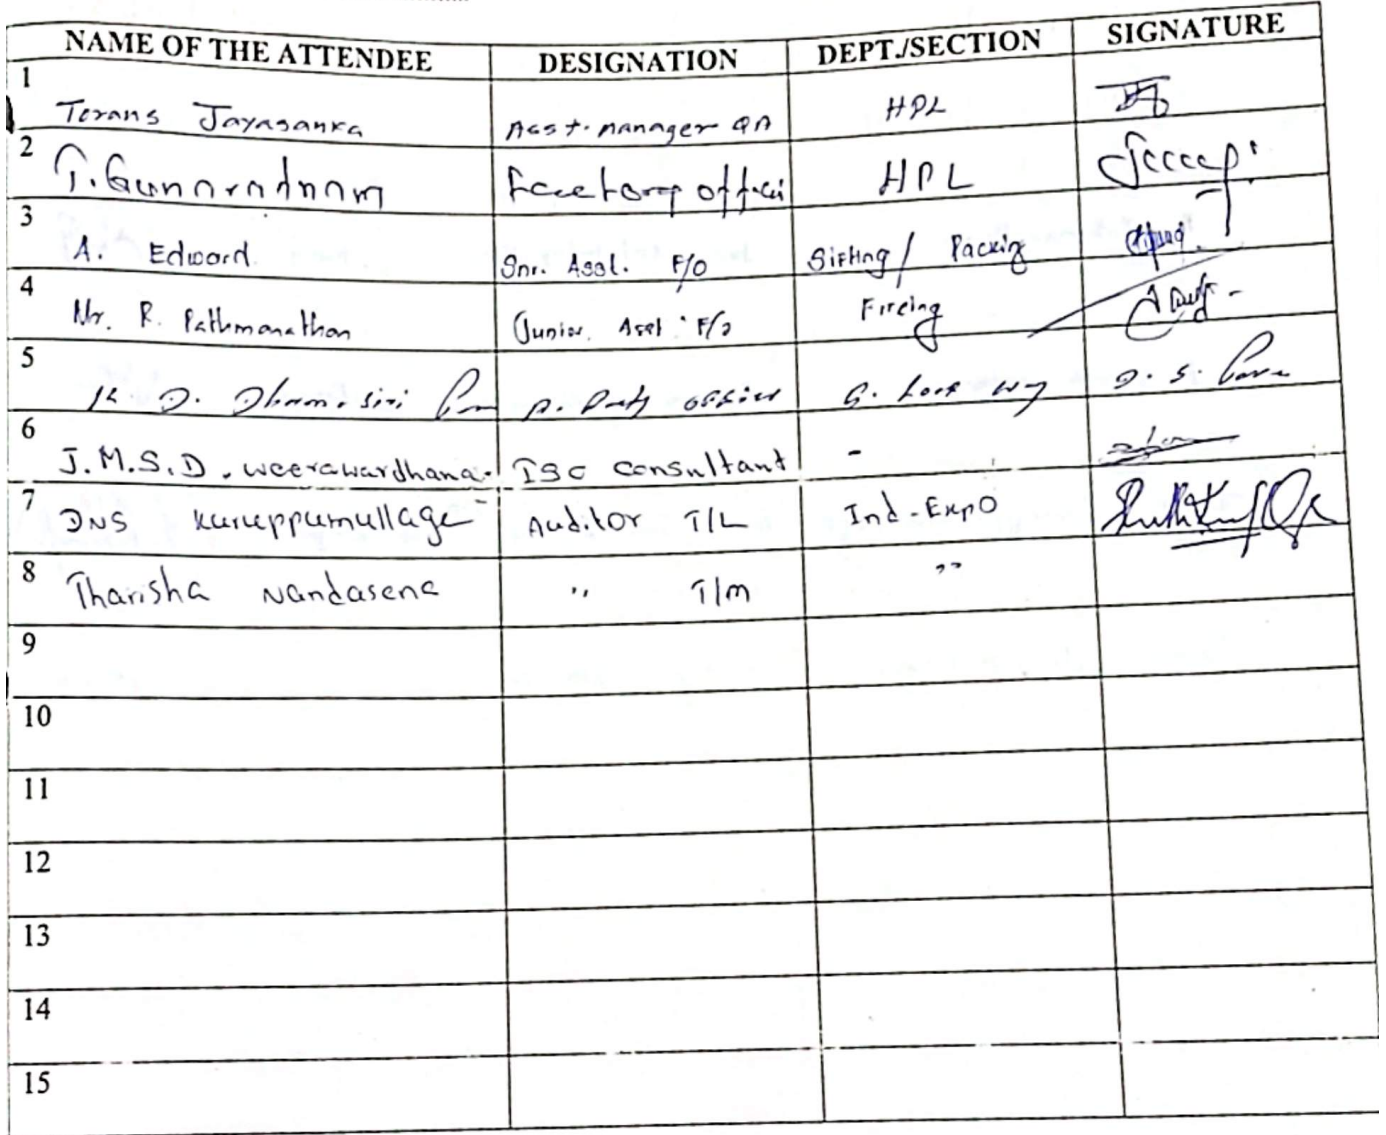 NAME OF THE ATTENDEE DESIGNATION DEPT./SECTION SIGNATURE
1
Terans Jayasanka Asst. manager QA HPL
2
T. Gunaratnam officer HPL
3
A. Edward Snr. Asst. F/O Sifting / Packing
4
Mr. R. Pathmanathan Junior Asst F/O Fireing
5
K. D. Dhamasiri officer
6
J.M.S.D. weerawardhana. ISO consultant -
7
DNS Kuruppumullage Auditor T/L Ind-Expo
8
Tharisha Nandasena " T/m "
9
10
11
12
13
14
15